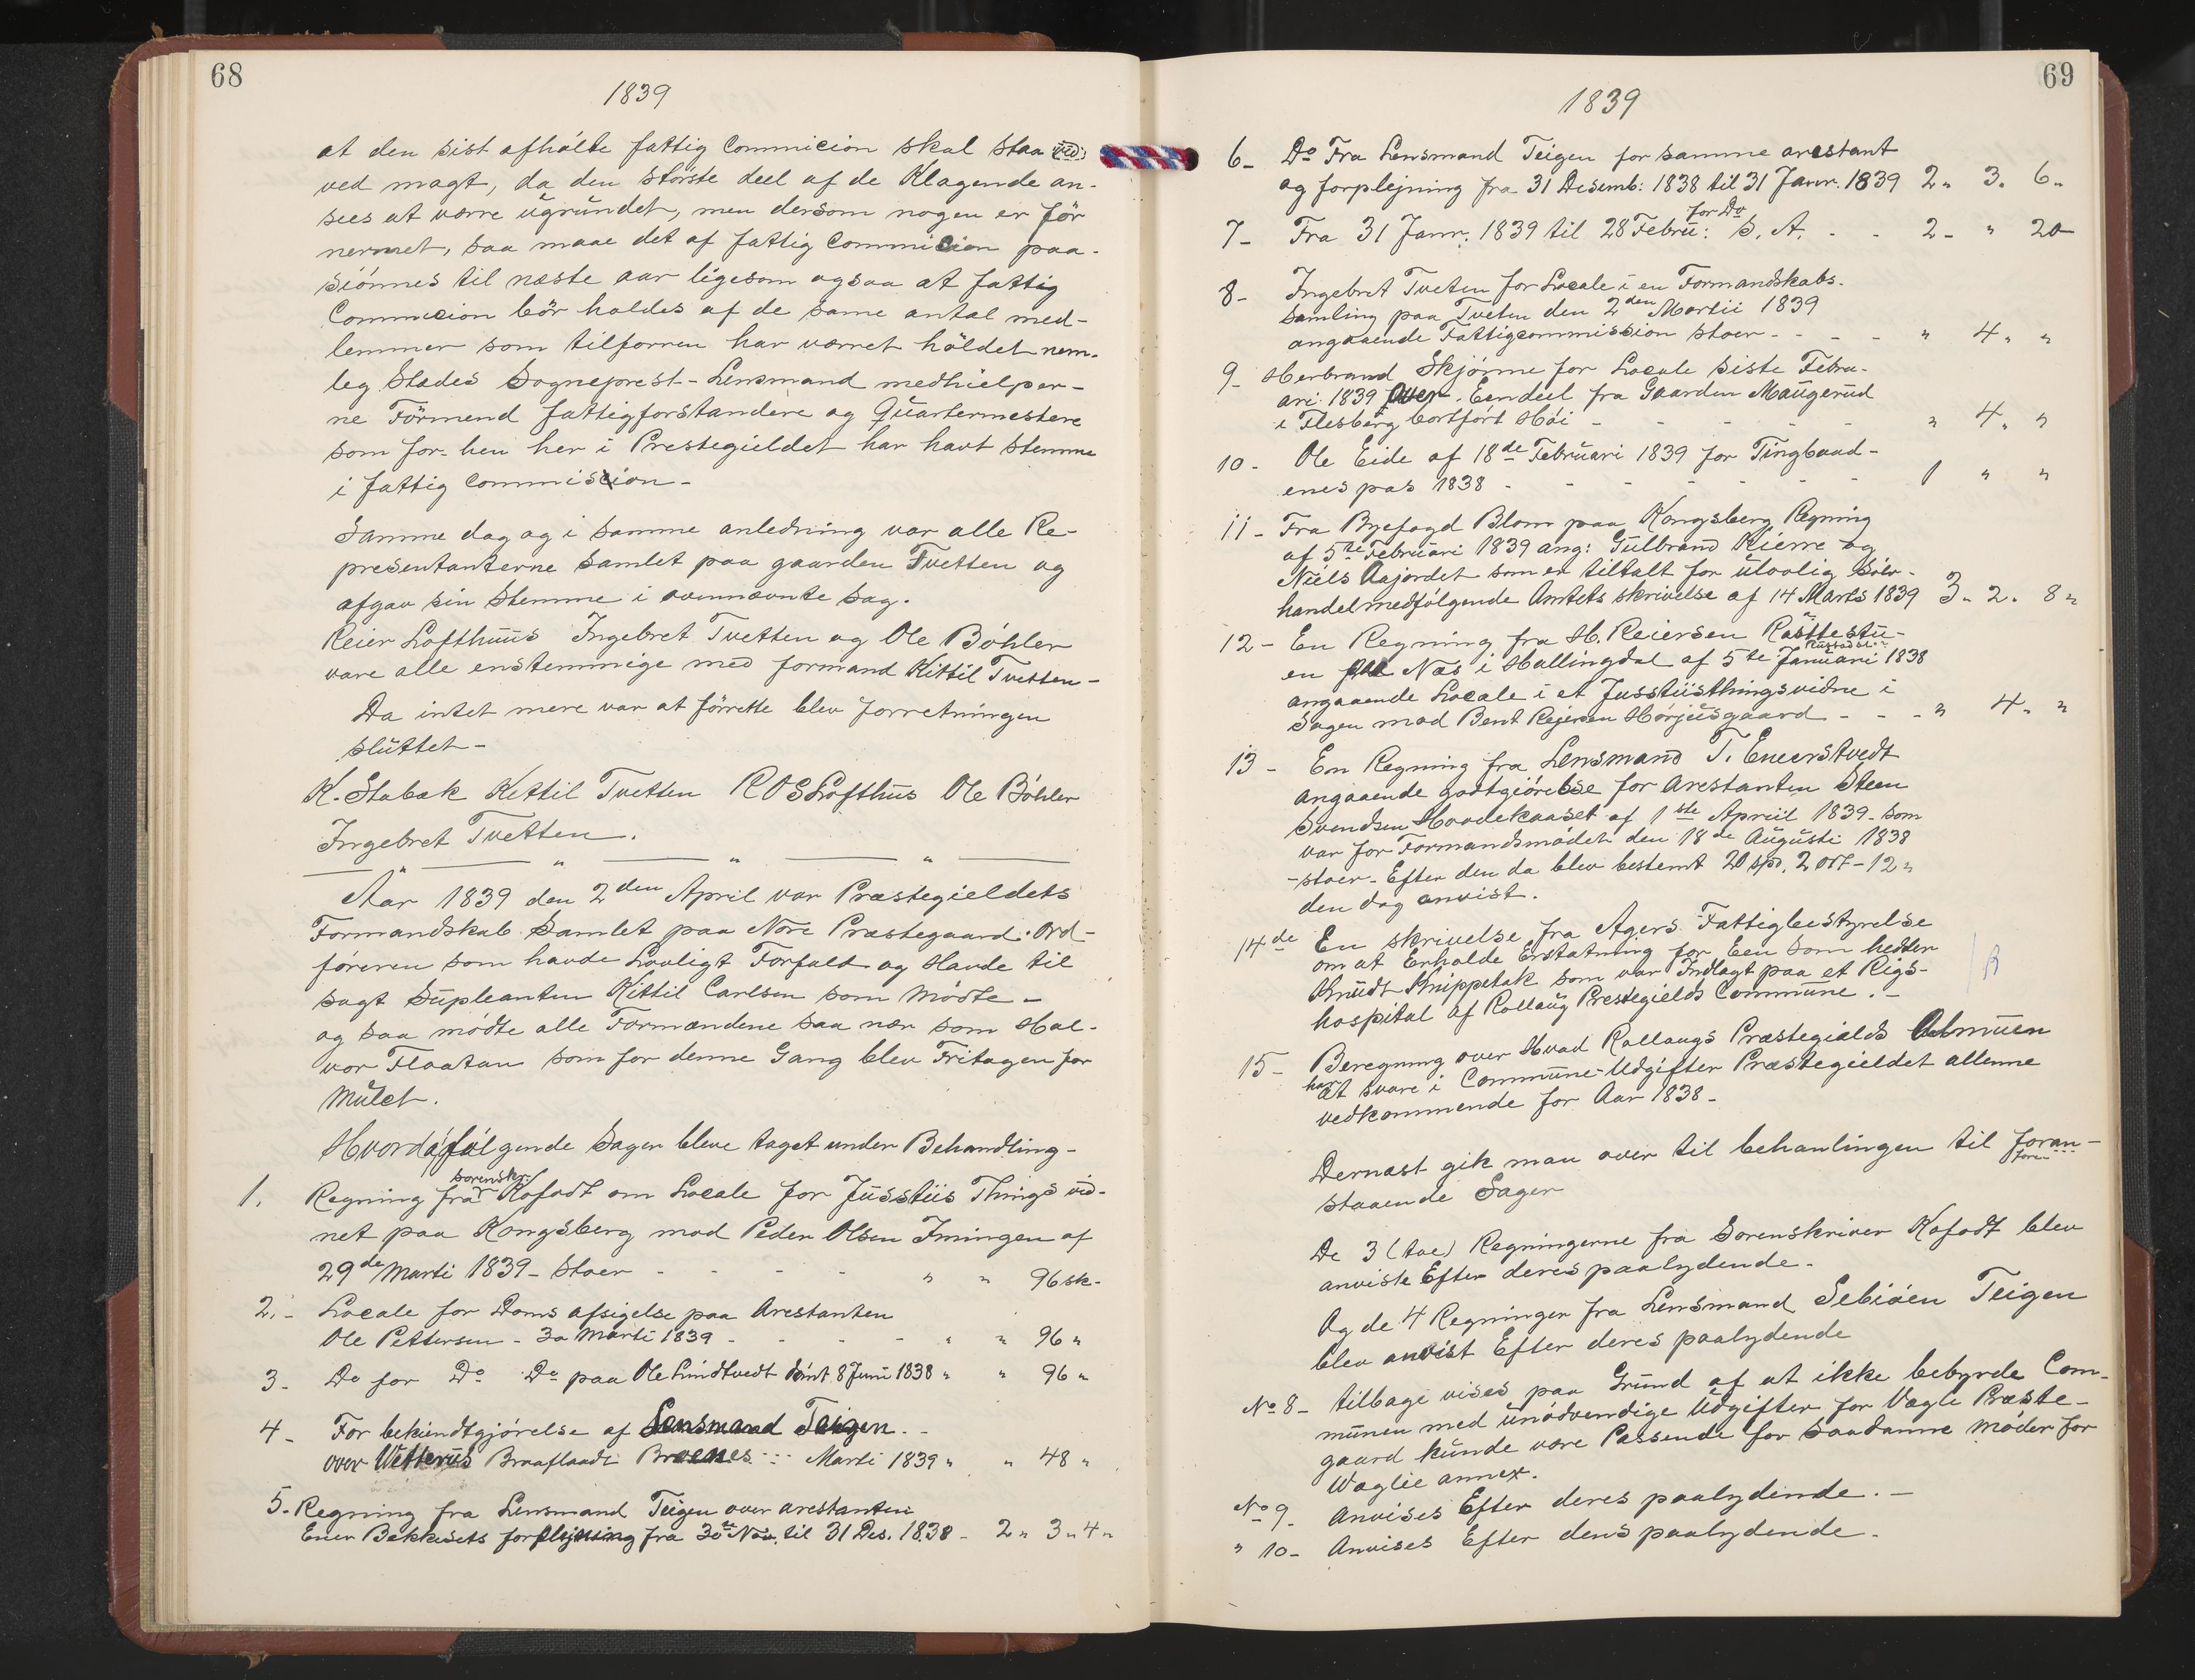 68
1839
at den sist afholte fattig Commicion skal staa
ved magt, da den störste deel af de Klagende an-
sees at værre ugrundet, men dersom nogen er för
nermet, saa maae det af fattig Commision paa-
siónnes til næste aar ligesom ogsaa at fattig
Commicion bör holdes af de same antal med-
lemmer som tilforren har værret höldet nem-
leg Stædes Sogneprest - Lensmand medhielper-
ne Förmend fattigforstandere og Quartermestere
som for-hen her i Prestegieldet har havt stemme
i fattig Commission -
Samme dag og i samme anledning var alle Re-
presentanterne samlet paa gaarden Tvetten og
afgav sin Stemme i ovennævnte Sag.
Reier Lofthuus Ingebret Tvetten og Ole Böhler
vare alle enstemmige med formand Kittil Tvetten -
Da intet mere var at förrette blev forretningen
sluttet -
K. Stabæk Kittil Tvetten R O S Lofthus Ole Böhler
Ingebret Tvetten.
Aar 1839 den 2den April var Præstegieldets
Formandskab Samlet paa Nore Præstegaard. Ord-
föreren som havde Lovligt Forfald og Havde til
sagt Supleanten Kittil Carlsen som Mödte -
og saa mödte alle Formændene saa nær som Hal-
vor Flaatan som for denne Gang blev Fritagen for
Mulct.
Hvorda fölgende Sager bleve taget under Behandling -
1. Regning fra sorenskr. Kofodt om Locale for Jusstiis Things vid-
net paa Kongsberg mod Peder Olsen Imingen af
29de Marti 1839 - stoer - - - - " " 96 sk -
2. - Locale for Doms afsigelse paa Arestanten
Ole Pettersen - 30 Marti 1839 - - - - " " 96 "
3 - Do for Do Do paa Ole Lindtvedt dömt 8 Juni 1838 " " 96 "
4 - For bekiendtgjørelse af Lensmand Teigen. -
over Braaflaadt Marti 1839 " " 48 "
5. - Regning fra Lensmand Teigen over arestanten
Ener Bekkisets forplejning fra 30te Nov. til 31 Des. 1838 - 2 " 3 " 4 "
69
1839
6 - Do Fra Lensmand Teigen for samme arestant
og forplejning fra 31 Desemb: 1838 til 31 Janr. 1839 2 " 3. 6 "
7 - Fra 31 Janr. 1839 til 28 Febru: for Do S. A. - - 2 - " 20
8 - Ingebret Tveten for Locale i en Formandskabs-
samling paa Tveten den 2den Martii 1839
angaaende Fattigcommission stoer - - - - " 4 " "
9 - Herbrand Skjönne for Locale siste Febru-
ari 1839 over. Eendeel fra Gaarden Maugerud
i Flesberg bortfört Höi - - - - - " 4 " "
10 - Ole Eide af 18de Februari 1839 for Tingbaand-
enes pas 1838 - - - - - - - 1 " "
11 - Fra Byefogd Blom paa Kongsberg Regning
af 5te Februari 1839 ang: Gulbrand Kierre og
Niels Aajordet som er tiltalt for ulovlig Sölv-
handel medfölgende Amtets skrivelse af 14 Marts 1839 3 - 2 - 8 "
12 - En Regning fra H. Reiersen Rasttestu-
en paa Næs i Hallingdal af 5te Januari 1838
angaaende Locale i et Jusstiisthingsvidne i
Sagen mod Bent Rejersen Hörjusgaard - - - " 4 " "
13 - Een Regning fra Lensmand T. Enerstvedt
angaaende godtgiörelse for Arestanten Steen
Svendsen Hovdekaaset af 1ste Apriil 1839 - som
var for Formandsmödet den 18de Augusti 1838
- stoer - Efter den da blev bestemt 20 sp. 2 ort - 12 "
den dag anvist.
14de En skrivelse fra Agers Fattigbestyrelse
om at Erholde Erstatning for Een som hedder
Knudt Knippetak som var Indlagt paa et Rigs-
hospital af Rollaug Prestegields Commune. -
15 - Beregning over Hvad Rollaugs Præstegields Almuen
har at svare i Commune-Udgifter Præstegieldet allenne
vedkommende for Aar 1838 -
Dernæst gik man over til behanlingen til foran-
staaende Sager
De 3 (tre) Regningerne fra Sorenskriver Kofodt blev
anviste Efter deres paalydende -
Og de 4 Regninger fra Lensmand Sebiöen Teigen
blev anvist Efter deres paalydende
No 8 - tilbage vises paa Grund af at ikke bebyrde Com-
munen med unödvendige Udgifter for Vægle Præste-
gaard kunde være Passende for saadanne Möder for
Wæglie annex.
No 9 - Anvises Efter deres paalydende. -
" 10 - Anvises Efter dens paalydende -